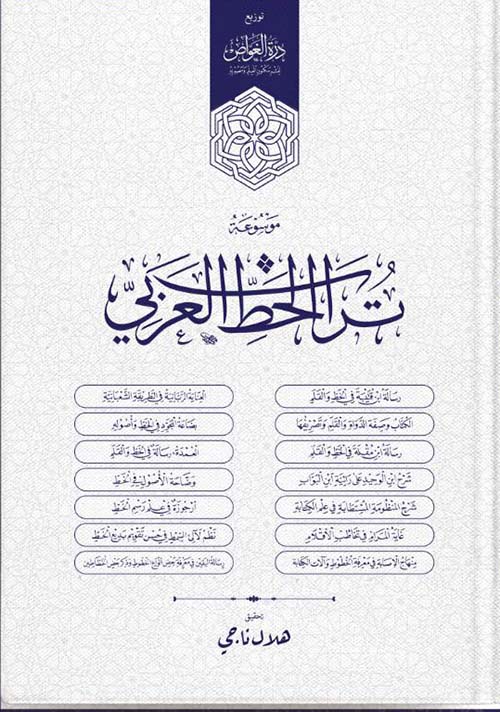 توزيع
درة الغواص
لنشر مكنون العلم وتصويره
موسوعة
تراث الخط العربي
رسالة ابن قتيبة في الخط والقلم
الكتاب وصفة الدواة والقلم وتصريفها
رسالة ابن مقلة في الخط والقلم
شرح ابن الوحيد على رائية ابن البواب
شرح المنظومة المستطابة في علم الكتابة
غاية المرام في تخاطب الأقلام
منهاج الإصابة في معرفة الخطوط وآلات الكتابة
العناية الربانية في الطريقة الشعبانية
بضاعة المجود في الخط وأصوله
العمدة، رسالة في الخط والقلم
وضاحة الأصول في الخط
أرجوزة في علم رسم الخط
نظم لآلئ السمط في حسن تقويم بديع الخط
رسالة اليقين في معرفة بعض أنواع الخطوط وذكر بعض الخطاطين
تحقيق
هلال ناجي